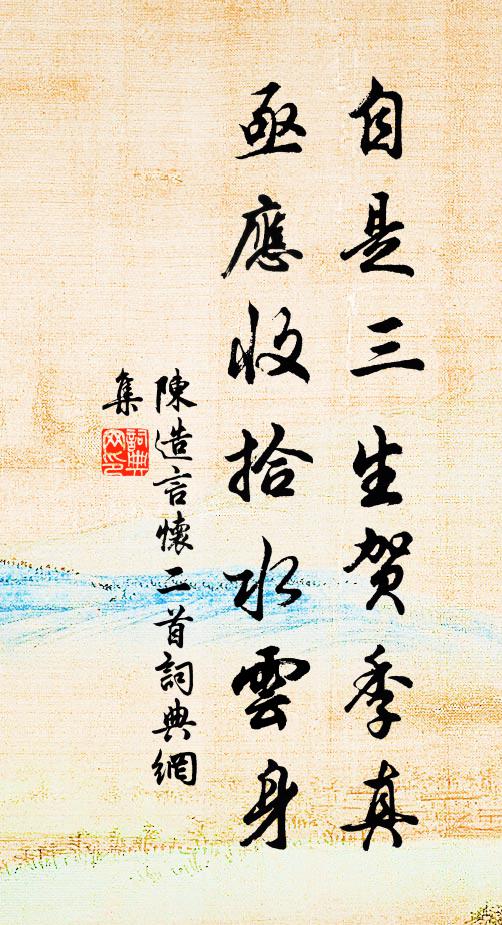 自是三生贺季真
亟應收拾水雲身
陳造言懷二首詞典網
集
詞典
网印